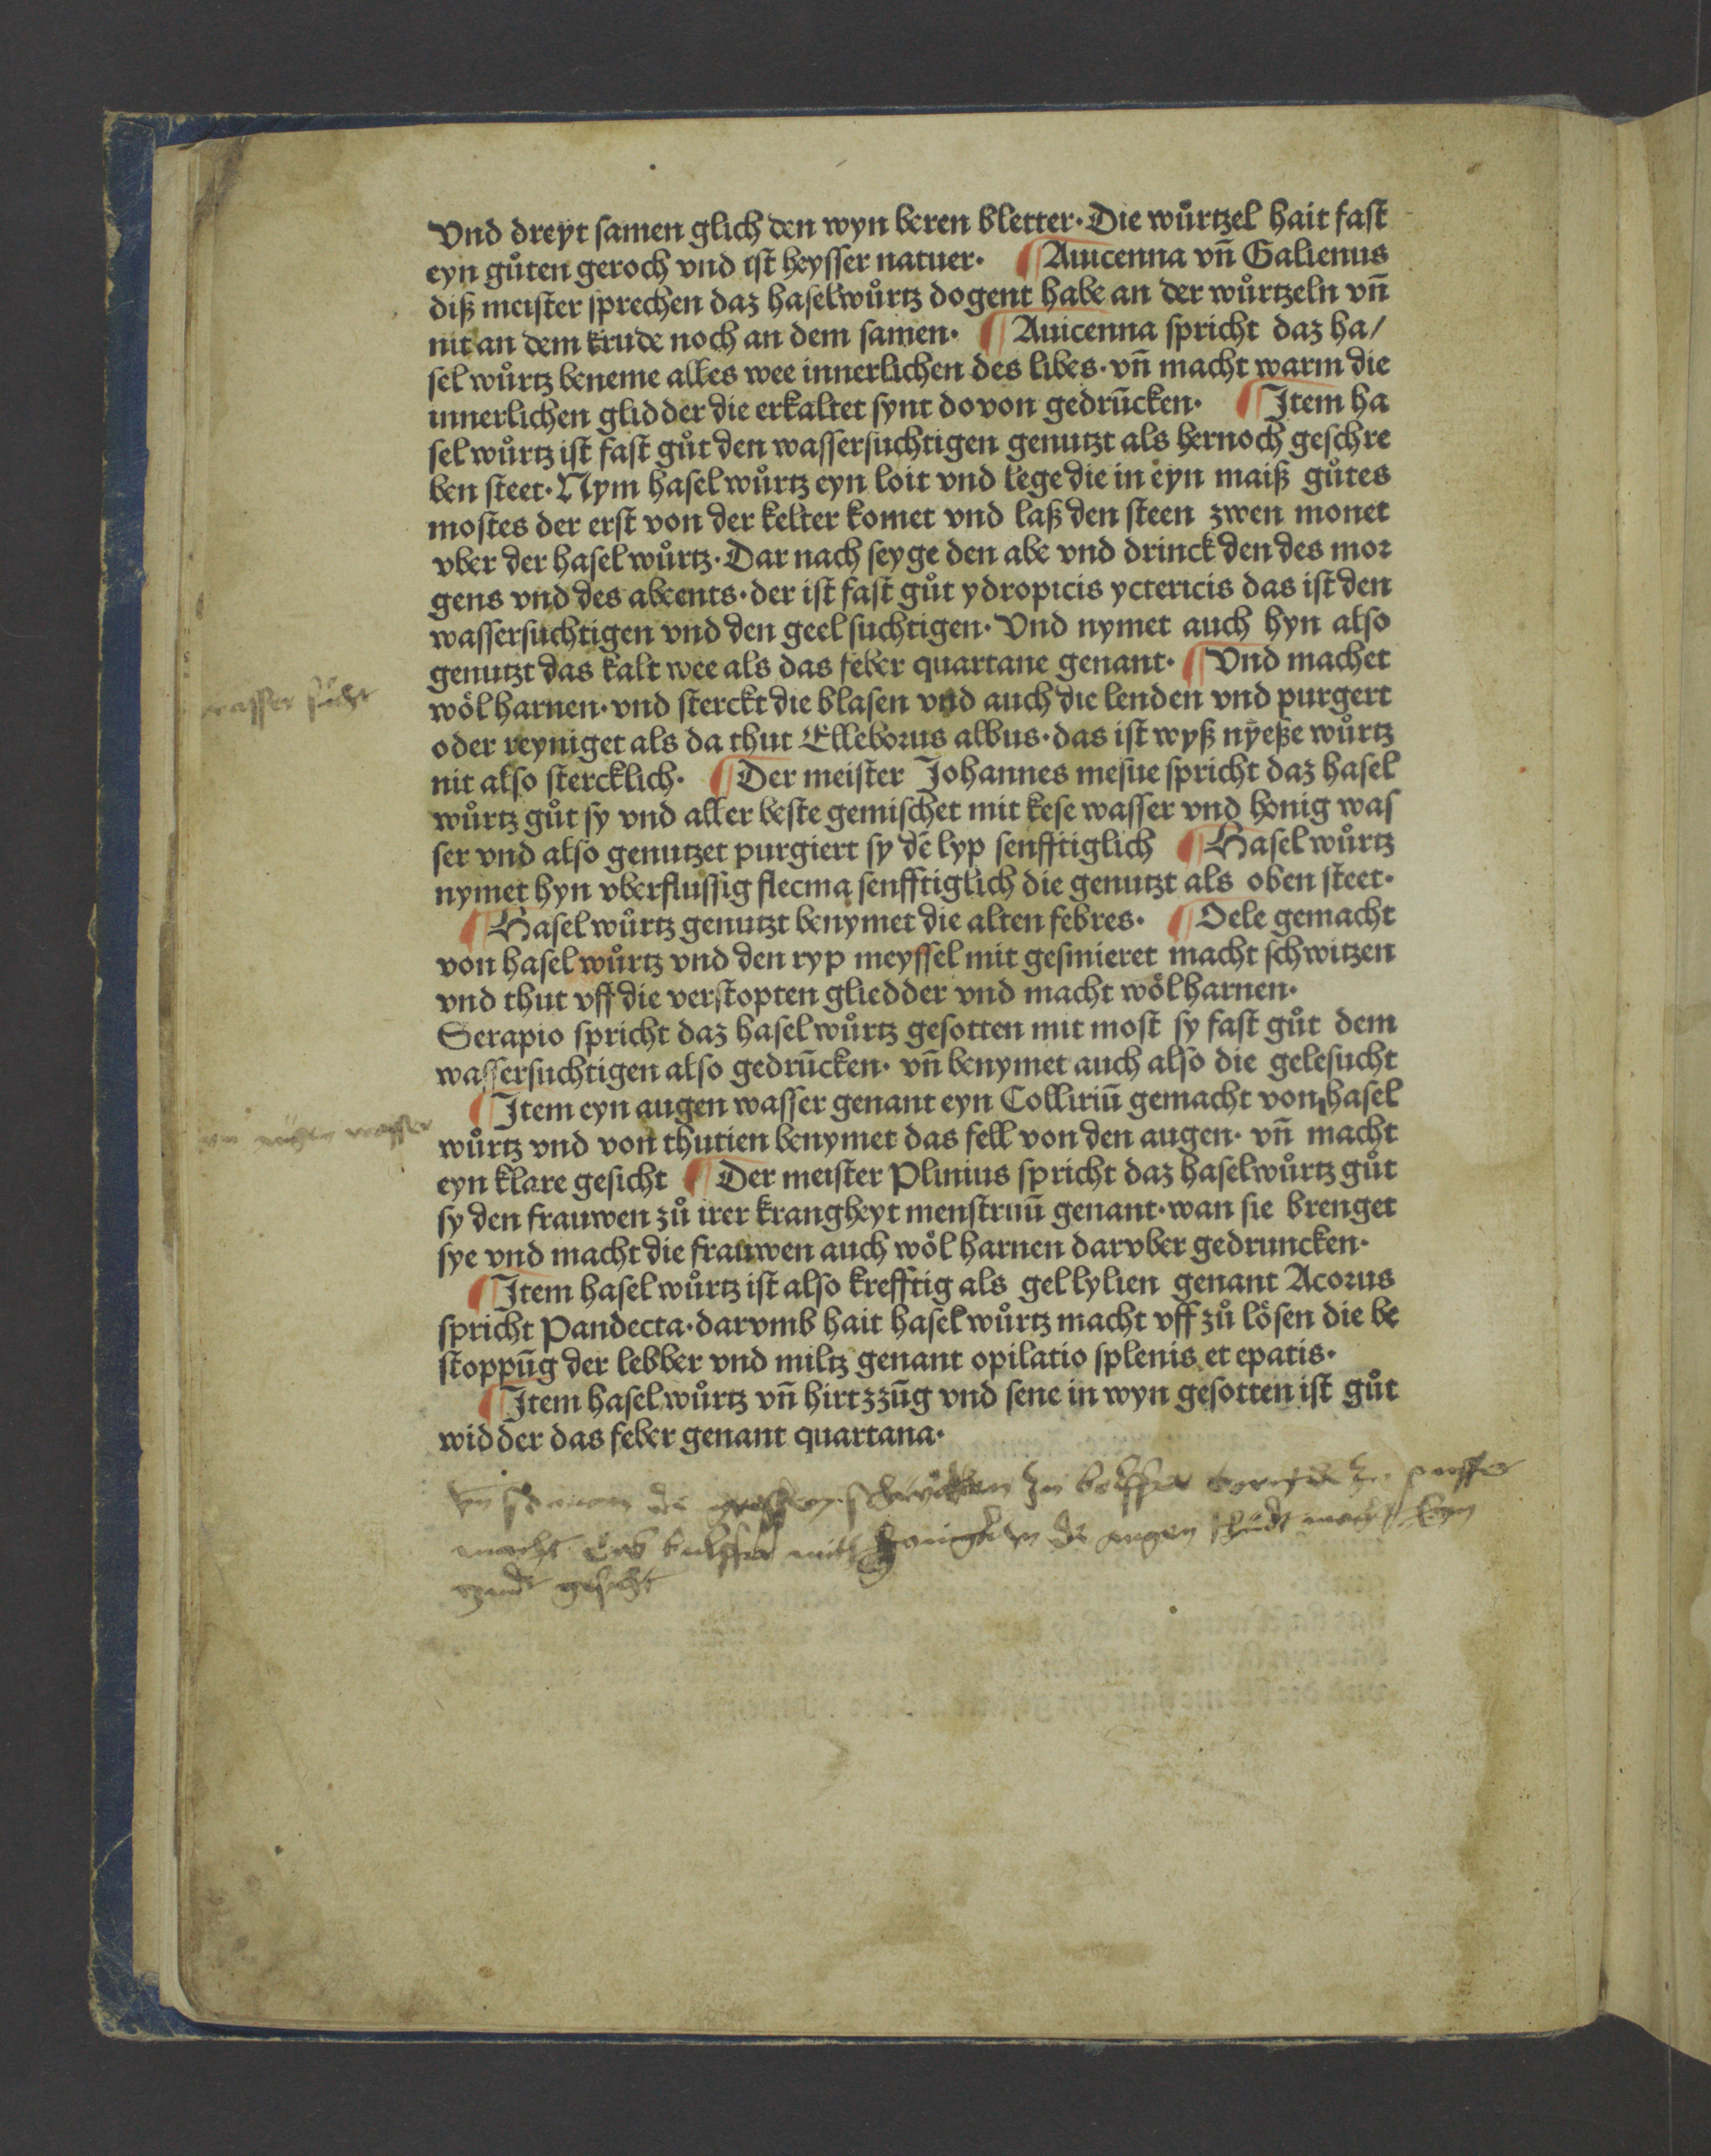 Vnd dreyt samen glich den wyn beren bletter· Die wůrtzel hait fast
eyn gůten geroch vnd ist heysser natuer· ¶ Auicenna vñ Galienus
diß meister sprechen daz haselwůrtz dogent habe an der wůrtzeln vñ
nit an dem krude noch an dem samen· ¶ Auicenna spricht daz ha/
sel wůrtz beneme alles wee innerlichen des libes· vñ macht warm die
innerlichen glidder die erkaltet synt dovon gedrūcken· ¶ Item ha
sel wůrtz ist fast gůt den wassersuchtigen genutzt als hernoch geschre
ben steet· Nym hasel wůrtz eyn loit vnd lege die in eyn maiß gůtes
mostes der erst von der kelter komet vnd laß den steen zwen monet
vber der hasel wůrtz· Dar nach seyge den abe vnd drinck den des mor
gens vnd des abents· der ist fast gůt ydropicis yctericis das ist den
wassersuchtigen vnd den geel suchtigen· Vnd nymet auch hyn also
genutzt das kalt wee als das feber quartane genant· ¶ Vnd machet
wasser sucht
wöl harnen· vnd sterckt die blasen vnd auch die lenden vnd purgert
oder reyniget als da thut Elleborus albus· das ist wyß nyeße wůrtz
nit also stercklich· ¶ Der meister Johannes mesue spricht daz hasel
wůrtz gůt sy vnd aller beste gemischet mit kese wasser vnd honig was
ser vnd also genutzet purgiert sy dē lyp senfftiglich ¶ Hasel wůrtz
nymet hyn vberflussig flecma senfftiglich die genutzt als oben steet·
¶ Hasel wůrtz genutzt benymet die alten febres· ¶ Oele gemacht
von hasel wůrtz vnd den ryp meyssel mit gesmieret macht schwitzen
vnd thut vff die verstopten gliedder vnd macht wöl harnen·
Serapio spricht daz hasel wůrtz gesotten mit most sy fast gůt dem
wassersuchtigen also gedrūcken· vñ benymet auch also die gelesucht
¶ Item eyn augen wasser genant eyn Colliriū gemacht von hasel
augen wasser
wůrtz vnd von thutien benymet das fell von den augen· vñ macht
eyn klare gesicht ¶ Der meister Plinius spricht daz haselwůrtz gůt
sy den frauwen zů irer krangheyt menstruū genant· wan sie brenget
sye vnd macht die frauwen auch wöl harnen darvber gedruncken·
¶ Item hasel wůrtz ist also krefftig als gel lylien genant Acorus
spricht Pandecta· darvmb hait hasel wůrtz macht vff zů lösen die be
stoppūg der lebber vnd miltz genant opilatio splenis et epatis·
¶ Item hasel wůrtz vñ hirtzzūg vnd sene in wyn gesotten ist gůt
widder das feber genant quartana·
macht mith die augen
gesicht